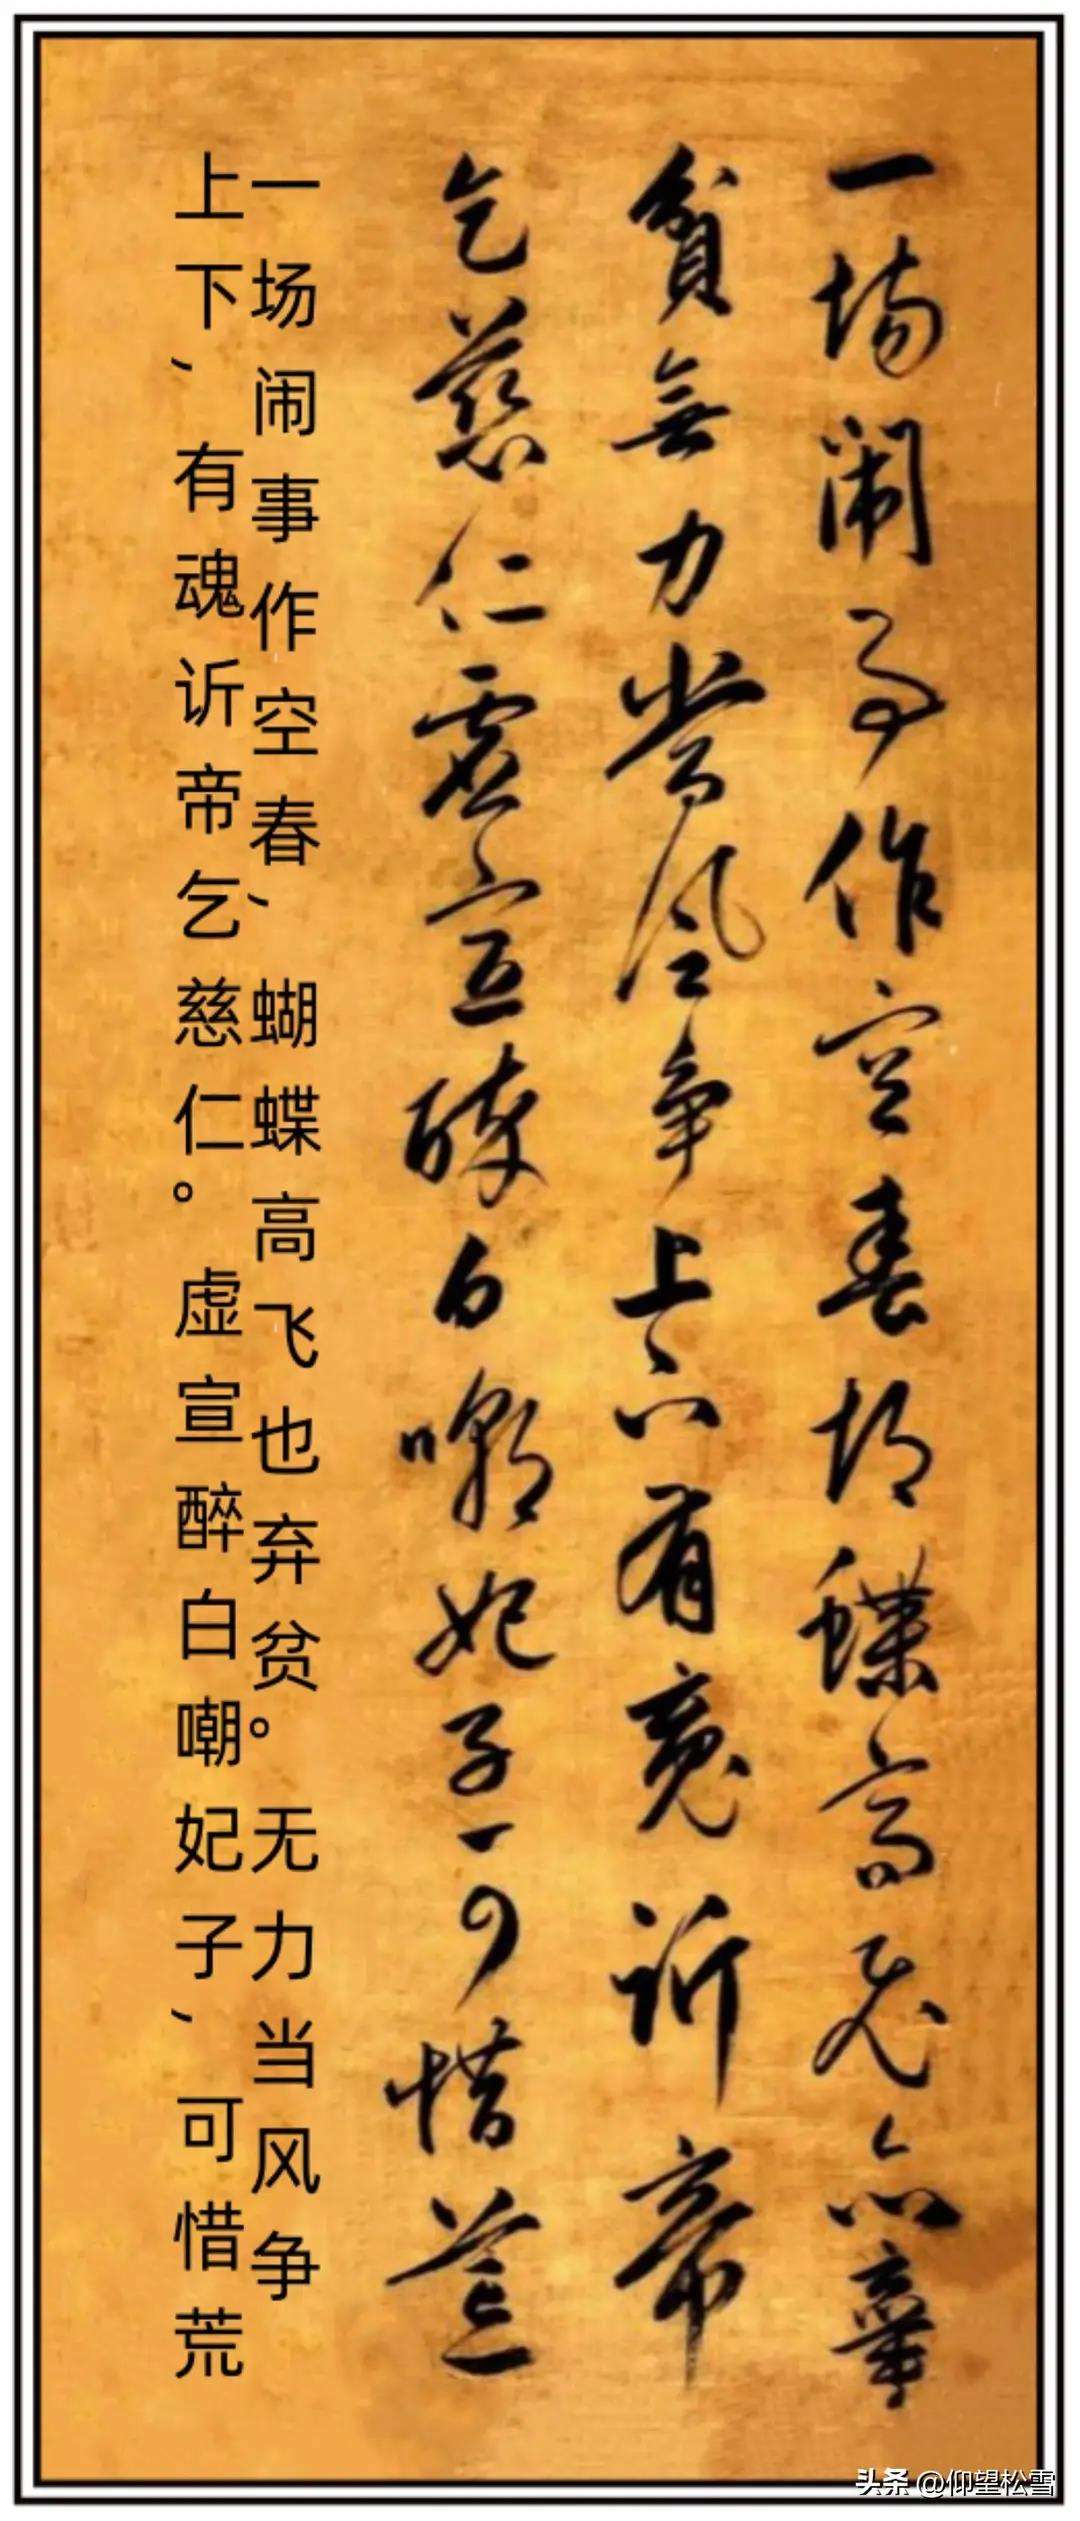 一場鬧事作空春蝴蝶高飛亦棄
貧無力當風爭上下有魂訢帝
乞慈仁虛宣醉白嘲妃子可惜荒
一场闹事作空春，蝴蝶高飞也弃贫。无力当风争
上下，有魂䜣帝乞慈仁。虚宣醉白嘲妃子，可惜荒
头条 @仰望松雪